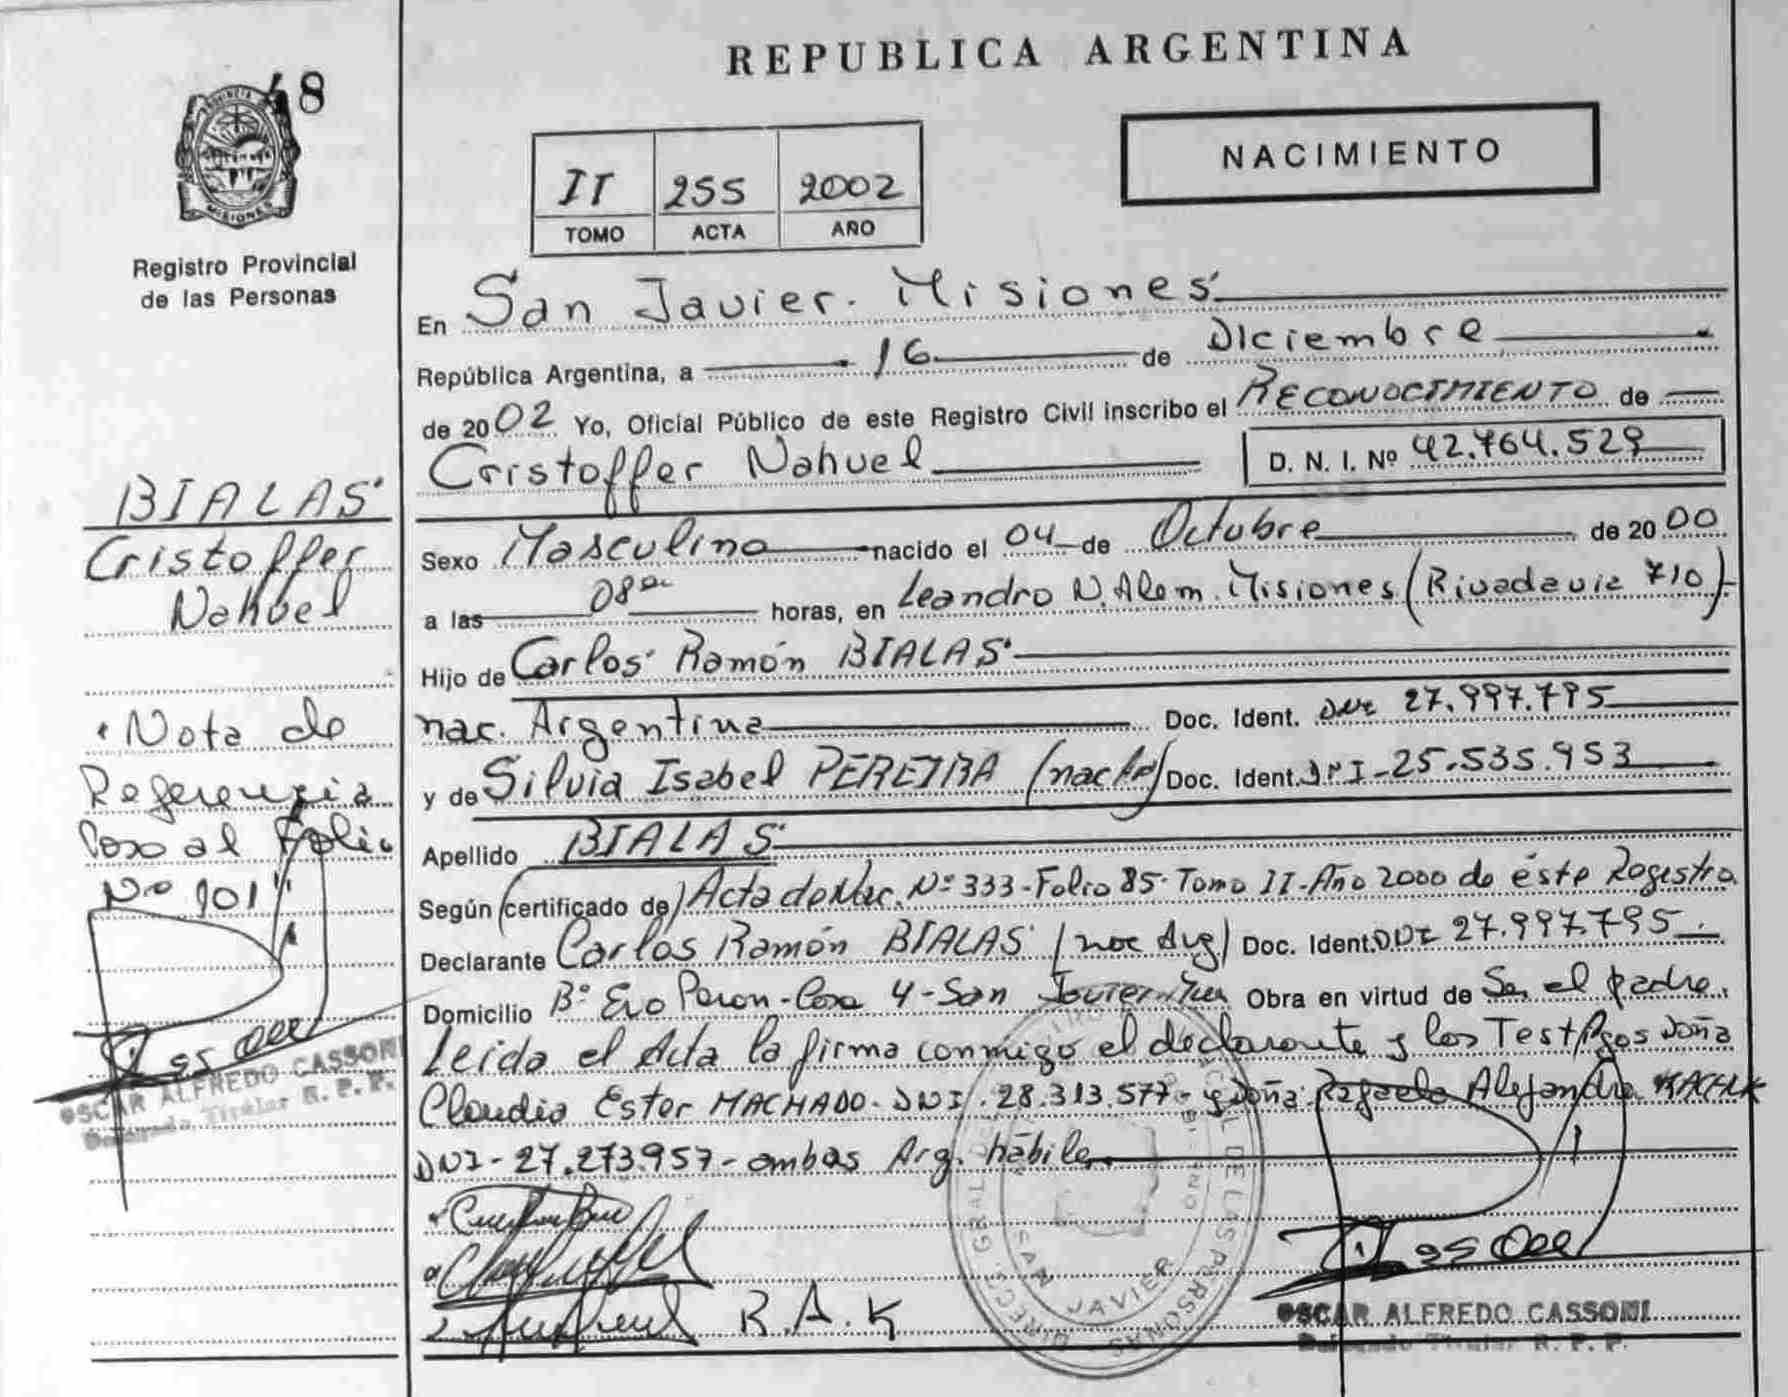 48
PROVINCIA DE
MISIONES
Registro Provincial
de las Personas
BIALAS
Cristoffer
Nahuel
Nota de
Referencia
Paso al Folio
Nº 101
OSCAR ALFREDO CASSONI
Delegado Titular R. P. P.
REPUBLICA ARGENTINA
NACIMIENTO
II 255 2002
TOMO ACTA AÑO
En San Javier. Misiones
República Argentina, a 16 de Diciembre
de 2002 Yo, Oficial Público de este Registro Civil inscribo el RECONOCIMIENTO de
Cristoffer Nahuel D. N. I. Nº 42.764.529
Sexo Masculino nacido el 04 de Octubre de 2000
a las 08 horas, en Leandro N. Alem. Misiones (Rivadavia 710)
Hijo de Carlos Ramón BIALAS
nac. Argentina Doc. Ident. DNI 27.997.795
y de Silvia Isabel PEREIRA (nac Ar) Doc. Ident. DNI-25.535.953
Apellido BIALAS
Según (certificado de) Acta de Nac. Nº 333-Folio 85-Tomo II-Año 2000 de éste Registro
Declarante Carlos Ramón BIALAS (nac Arg) Doc. Ident. DNI 27.997.795
Domicilio Bº Eva Peron-Casa 4-San Javier Obra en virtud de Ser el padre.
Leida el Acta la firma conmigo el declarante y los Testigos Doña
Claudia Ester MACHADO-DNI.28.313.577-y Doña Alejandra
DNI-27.273.957-ambas Arg. hábiles
R.A.K
SAN JAVIER
OSCAR ALFREDO CASSONI
Delegado Titular R. P. P.